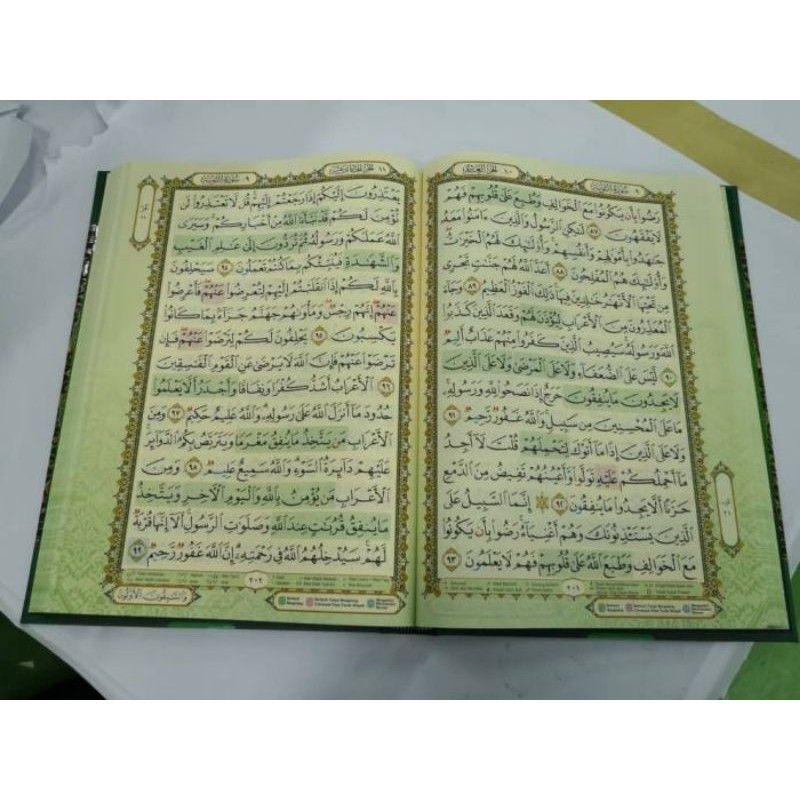 ٩ سُورَةُ التَّوْبَةِ
الجُزْءُ العَاشِرُ ١٠
رَضُوا۟ بِأَن يَكُونُوا۟ مَعَ ٱلْخَوَالِفِ وَطُبِعَ عَلَىٰ قُلُوبِهِمْ فَهُمْ
لَا يَفْقَهُونَ ٨٧ لَٰكِنِ ٱلرَّسُولُ وَٱلَّذِينَ ءَامَنُوا۟ مَعَهُۥ
جَٰهَدُوا۟ بِأَمْوَٰلِهِمْ وَأَنفُسِهِمْ وَأُو۟لَٰٓئِكَ لَهُمُ ٱلْخَيْرَٰتُ
وَأُو۟لَٰٓئِكَ هُمُ ٱلْمُفْلِحُونَ ٨٨ أَعَدَّ ٱللَّهُ لَهُمْ جَنَّٰتٍ تَجْرِى
مِن تَحْتِهَا ٱلْأَنْهَٰرُ خَٰلِدِينَ فِيهَا ذَٰلِكَ ٱلْفَوْزُ ٱلْعَظِيمُ ٨٩ وَجَآءَ
ٱلْمُعَذِّرُونَ مِنَ ٱلْأَعْرَابِ لِيُؤْذَنَ لَهُمْ وَقَعَدَ ٱلَّذِينَ كَذَبُوا۟
ٱللَّهَ وَرَسُولَهُۥ سَيُصِيبُ ٱلَّذِينَ كَفَرُوا۟ مِنْهُمْ عَذَابٌ أَلِيمٌ
٩٠ لَّيْسَ عَلَى ٱلضُّعَفَآءِ وَلَا عَلَى ٱلْمَرْضَىٰ وَلَا عَلَى ٱلَّذِينَ
لَا يَجِدُونَ مَا يُنفِقُونَ حَرَجٌ إِذَا نَصَحُوا۟ لِلَّهِ وَرَسُولِهِۦ
مَا عَلَى ٱلْمُحْسِنِينَ مِن سَبِيلٍ وَٱللَّهُ غَفُورٌ رَّحِيمٌ ٩١
وَلَا عَلَى ٱلَّذِينَ إِذَا مَآ أَتَوْكَ لِتَحْمِلَهُمْ قُلْتَ لَآ أَجِدُ
مَآ أَحْمِلُكُمْ عَلَيْهِ تَوَلَّوا۟ وَّأَعْيُنُهُمْ تَفِيضُ مِنَ ٱلدَّمْعِ
حَزَنًا أَلَّا يَجِدُوا۟ مَا يُنفِقُونَ ٩٢ ۞ إِنَّمَا ٱلسَّبِيلُ عَلَى
ٱلَّذِينَ يَسْتَـْٔذِنُونَكَ وَهُمْ أَغْنِيَآءُ رَضُوا۟ بِأَن يَكُونُوا۟
مَعَ ٱلْخَوَالِفِ وَطَبَعَ ٱللَّهُ عَلَىٰ قُلُوبِهِمْ فَهُمْ لَا يَعْلَمُونَ ٩٣
٢٠١
٩ سُورَةُ التَّوْبَةِ
١١
يَعْتَذِرُونَ إِلَيْكُمْ إِذَا رَجَعْتُمْ إِلَيْهِمْ قُل لَّا تَعْتَذِرُوا۟ لَن
نُّؤْمِنَ لَكُمْ قَدْ نَبَّأَنَا ٱللَّهُ مِنْ أَخْبَارِكُمْ وَسَيَرَى
ٱللَّهُ عَمَلَكُمْ وَرَسُولُهُۥ ثُمَّ تُرَدُّونَ إِلَىٰ عَٰلِمِ ٱلْغَيْبِ
وَٱلشَّهَٰدَةِ فَيُنَبِّئُكُم بِمَا كُنتُمْ تَعْمَلُونَ ٩٤ سَيَحْلِفُونَ
بِٱللَّهِ لَكُمْ إِذَا ٱنقَلَبْتُمْ إِلَيْهِمْ لِتُعْرِضُوا۟ عَنْهُمْ فَأَعْرِضُوا۟
عَنْهُمْ إِنَّهُمْ رِجْسٌ وَمَأْوَىٰهُمْ جَهَنَّمُ جَزَآءًۢ بِمَا كَانُوا۟
يَكْسِبُونَ ٩٥ يَحْلِفُونَ لَكُمْ لِتَرْضَوْا۟ عَنْهُمْ فَإِن
تَرْضَوْا۟ عَنْهُمْ فَإِنَّ ٱللَّهَ لَا يَرْضَىٰ عَنِ ٱلْقَوْمِ ٱلْفَٰسِقِينَ
٩٦ ٱلْأَعْرَابُ أَشَدُّ كُفْرًا وَنِفَاقًا وَأَجْدَرُ أَلَّا يَعْلَمُوا۟
حُدُودَ مَآ أَنزَلَ ٱللَّهُ عَلَىٰ رَسُولِهِۦ وَٱللَّهُ عَلِيمٌ حَكِيمٌ ٩٧ وَمِنَ
ٱلْأَعْرَابِ مَن يَتَّخِذُ مَا يُنفِقُ مَغْرَمًا وَيَتَرَبَّصُ بِكُمُ ٱلدَّوَآئِرَ
عَلَيْهِمْ دَآئِرَةُ ٱلسَّوْءِ وَٱللَّهُ سَمِيعٌ عَلِيمٌ ٩٨ وَمِنَ
ٱلْأَعْرَابِ مَن يُؤْمِنُ بِٱللَّهِ وَٱلْيَوْمِ ٱلْءَاخِرِ وَيَتَّخِذُ
مَا يُنفِقُ قُرُبَٰتٍ عِندَ ٱللَّهِ وَصَلَوَٰتِ ٱلرَّسُولِ أَلَآ إِنَّهَا قُرْبَةٌ
لَّهُمْ سَيُدْخِلُهُمُ ٱللَّهُ فِى رَحْمَتِهِۦٓ إِنَّ ٱللَّهَ غَفُورٌ رَّحِيمٌ ٩٩
٢٠٢
وَالسَّٰبِقُونَ الْأَوَّلُونَ